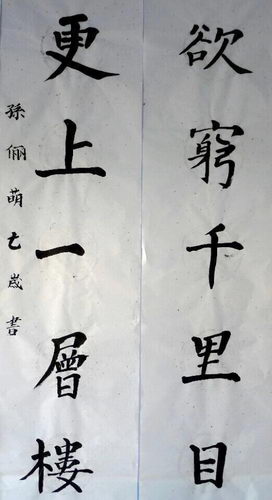 欲窮千里目
更上一層樓
孫俪萌七歲書